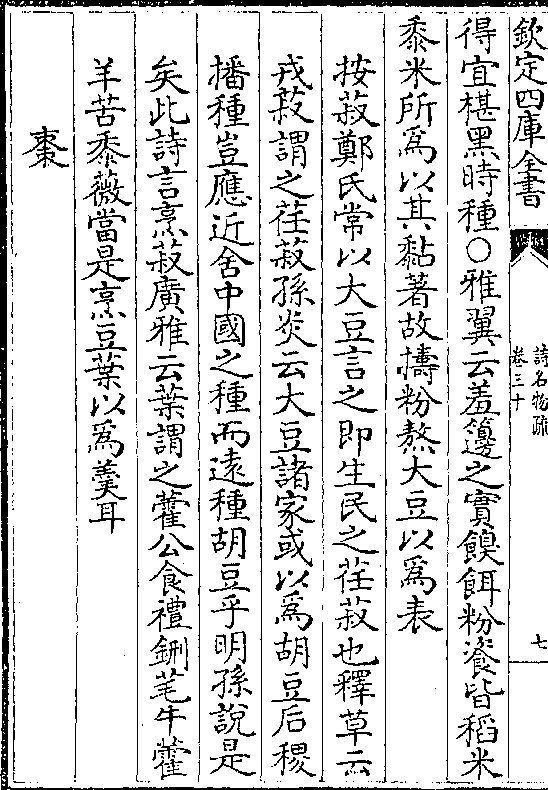 欽定四庫全書
詩名物疏
卷三十
七
得宜椹黑時種○雅翼云羞籩之實餱餌粉餈皆稻米
黍米所為以其黏著故擣粉熬大豆以為表
按菽鄭氏常以大豆言之即生民之荏菽也釋草云
戎菽謂之荏菽孫炎云大豆諸家或以為胡豆后稷
播種豈應近舍中國之種而遠種胡豆乎明孫說是
矣此詩言烹菽廣雅云葉謂之藿公食禮鉶芼牛藿
羊苦黍薇當是烹豆葉以為羹耳
棗